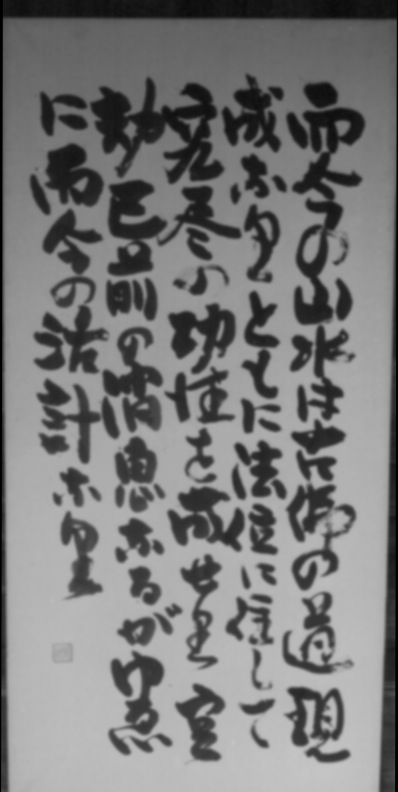 而今の山水は古佛の道現
成なりともに法位に住して
究尽の功徳を成せり空
劫已前の消息なるがゆゑ
に而今の活計なり